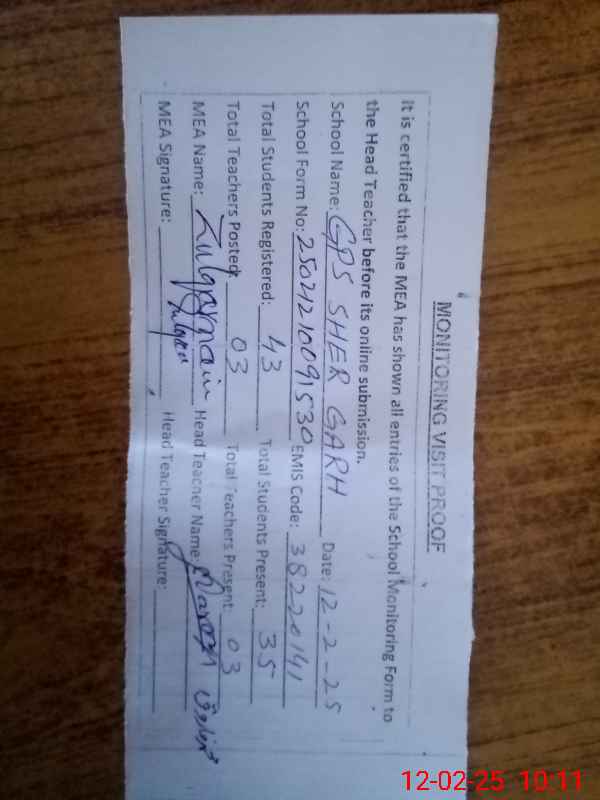 MONITORING VISIT PROOF
It is certified that the MEA has shown all entries of the School Monitoring Form to
the Head Teacher before its online submission.
School Name: GPS SHER GARH Date: 12-2-25
School Form No: 25021210091530 EMIS Code: 38220141
Total Students Registered: 43 Total Students Present: 35
Total Teachers Posted: 03 Total Teachers Present: 03
MEA Name: Zulqarnain Head Teacher Name:
MEA Signature: Head Teacher Signature:
12-02-25 10:11